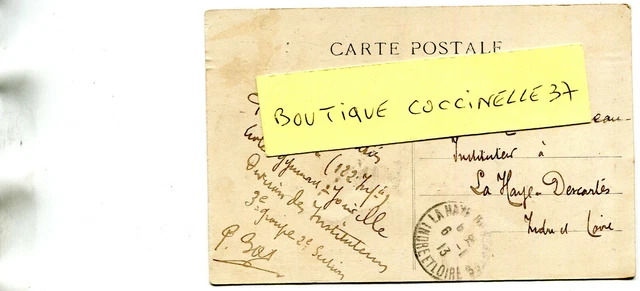 CARTE POSTALE
BOUTIQUE COCCINELLE 37
(122e Inf.ie)
Gymnast. Joinville
Division des Instituteurs
3e groupe 2e Section
P. Bas
eau
Instituteur à
La Haye-Descartes
Indre et Loire
LA HAYE
6-1
13
INDRE ET LOIRE